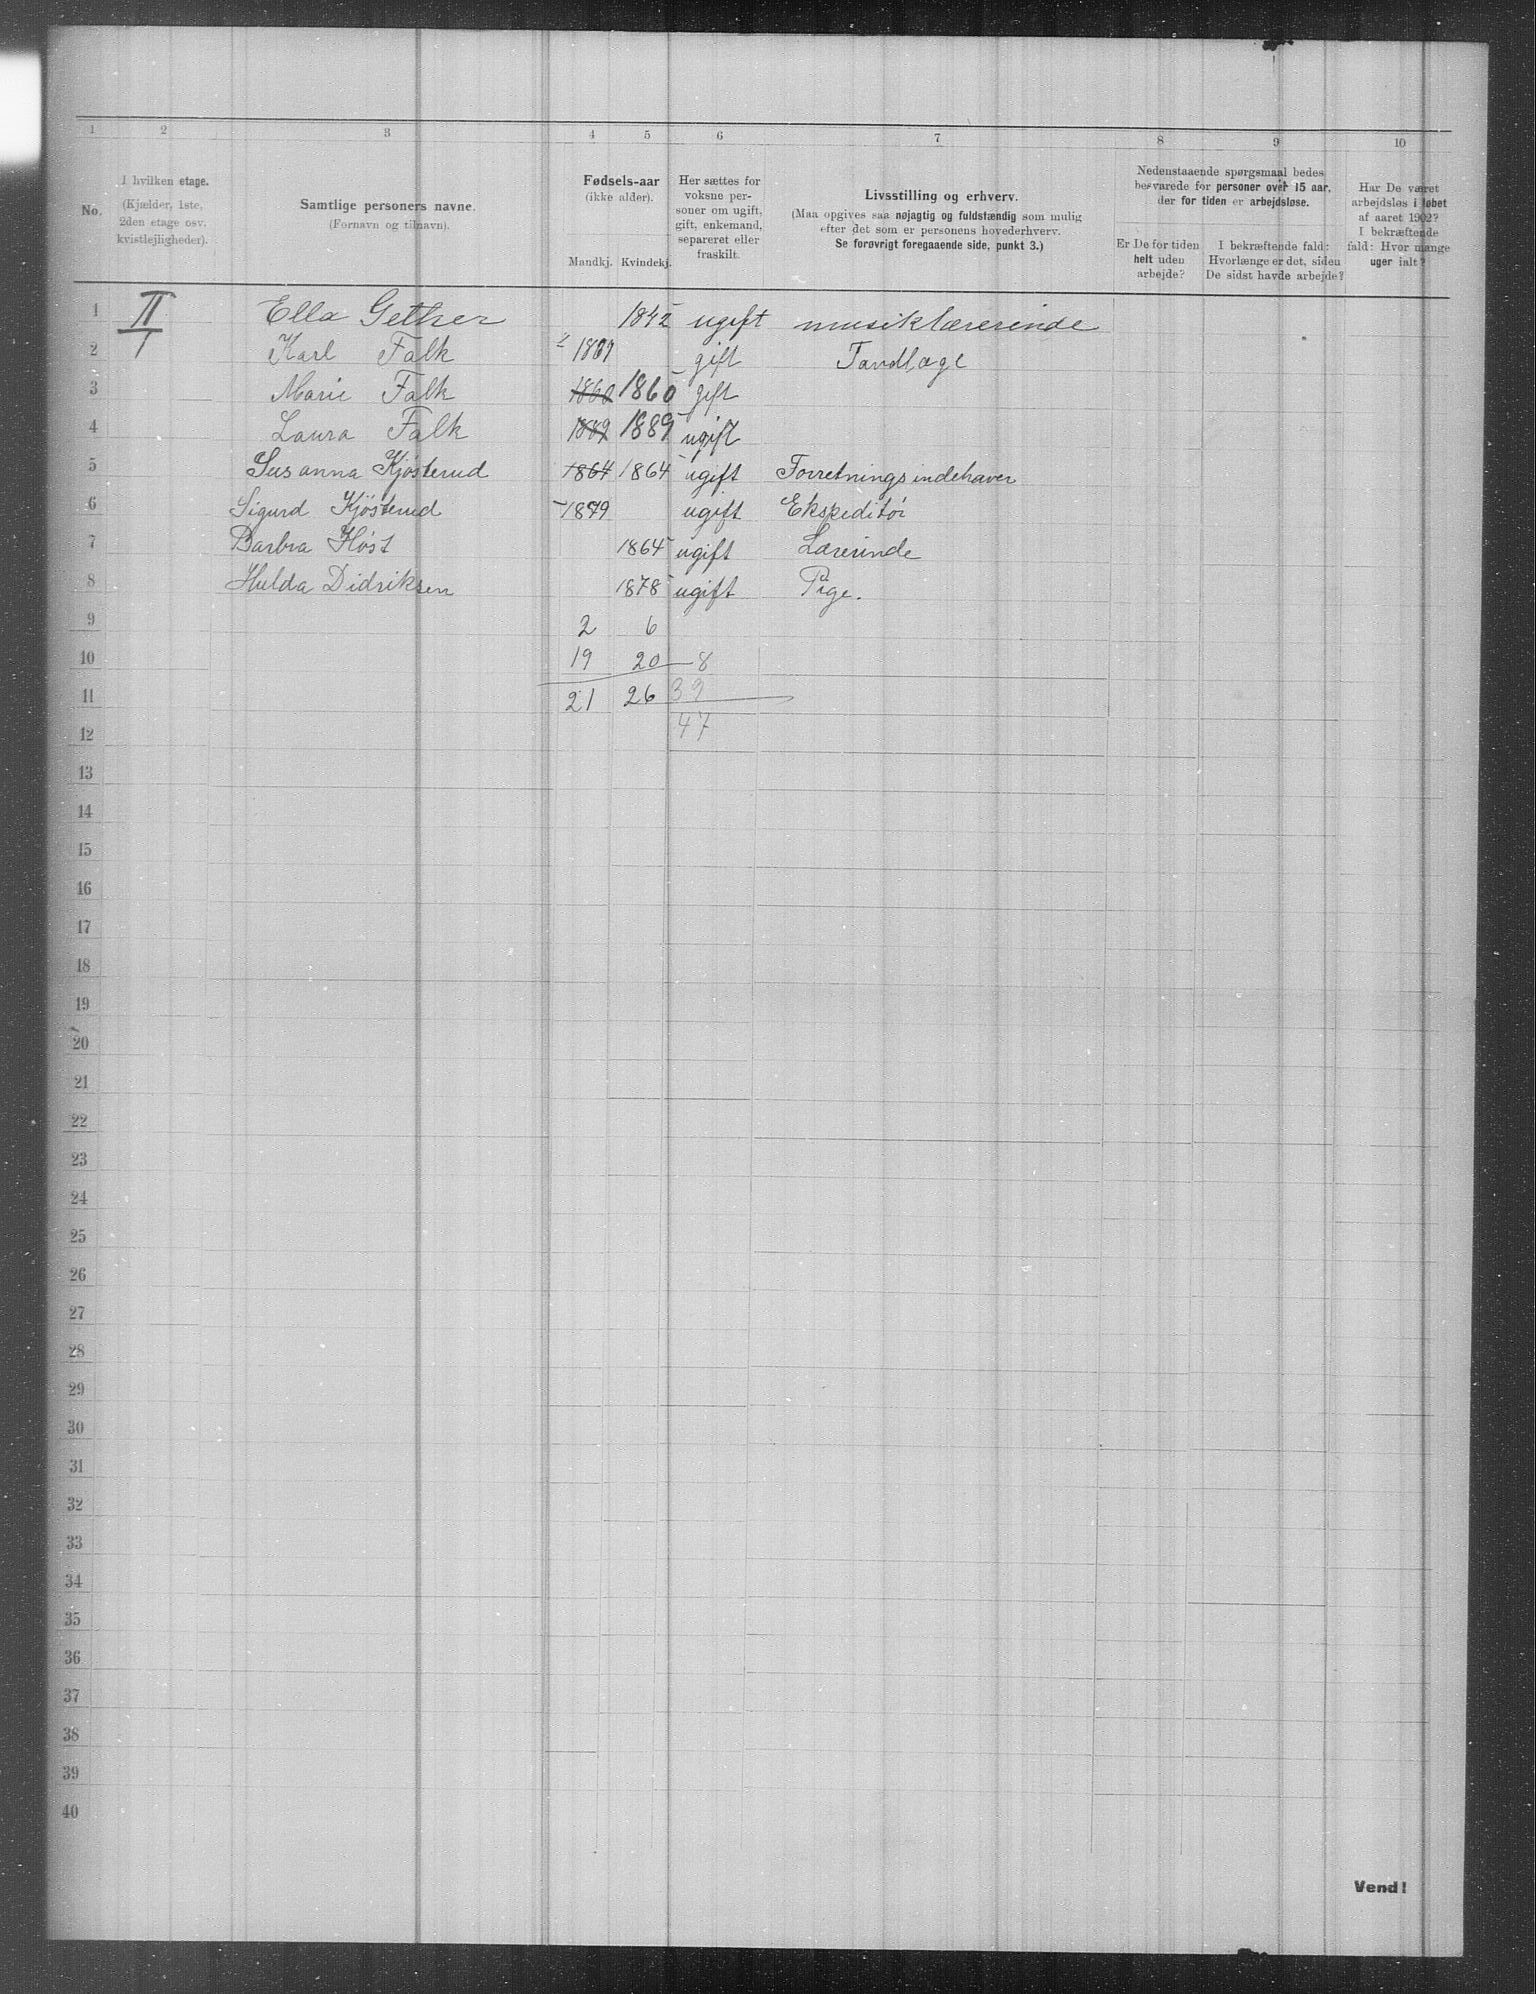 1 2 3 4 5 6 7 8 9 10
No.
I hvilken etage.
(Kjælder, 1ste,
2den etage osv.
kvistlejligheder).
Samtlige personers navne.
(Fornavn og tilnavn).
Fødsels-aar
(ikke alder).
Mandkj. Kvindekj.
Her sættes for
voksne per-
soner om ugift,
gift, enkemand,
separeret eller
fraskilt.
Livsstilling og erhverv.
(Maa opgives saa nøjagtig og fuldstændig som mulig
efter det som er personens hovederhverv.
Se forøvrigt foregaaende side, punkt 3.)
Nedenstaaende spørgsmaal bedes
besvarede for personer over 15 aar,
der for tiden er arbejdsløse.
Er De for tiden
helt uden
arbejde?
I bekræftende fald:
Hvorlænge er det, siden
De sidst havde arbejde?
Har De været
arbejdsløs i løbet
af aaret 1902?
I bekræftende
fald: Hvor mange
uger ialt?
1 II Ella Gether 1842 ugift musiklærerinde
2 Karl Falk gift Tandlæge
3 Marie Falk 1860 1860 gift
4 Laura Falk 1889 1889 ugift
5 Susanna Kjøsterud 1864 1864 ugift Forretningsindehaver
6 Sigurd Kjøsterud 1879 ugift Ekspeditør
7 Barbra Høst 1864 ugift Lærerinde
8 Hulda Didriksen 1878 ugift Pige.
9 2 6
10 19 20 8
11 21 26 39
12 47
13
14
15
16
17
18
19
20
21
22
23
24
25
26
27
28
29
30
31
32
33
34
35
36
37
38
39
40
Vend!